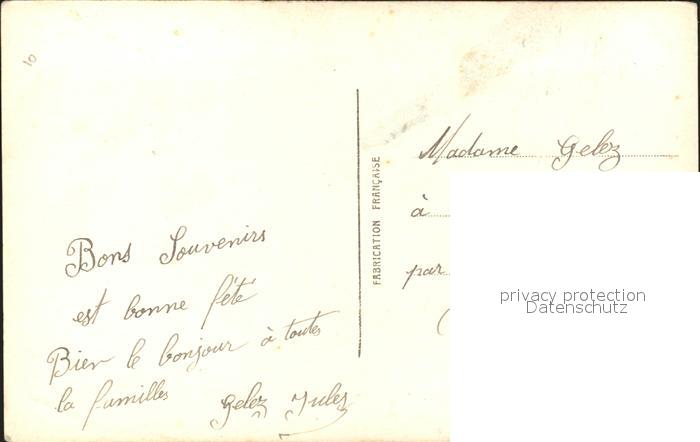 10
Bons Souvenirs
est bonne fété
Bien le bonjour à toutes
la familles
Gelez Jules
FABRICATION FRANÇAISE
Madame Gelez
à
par
(
privacy protection
Datenschutz